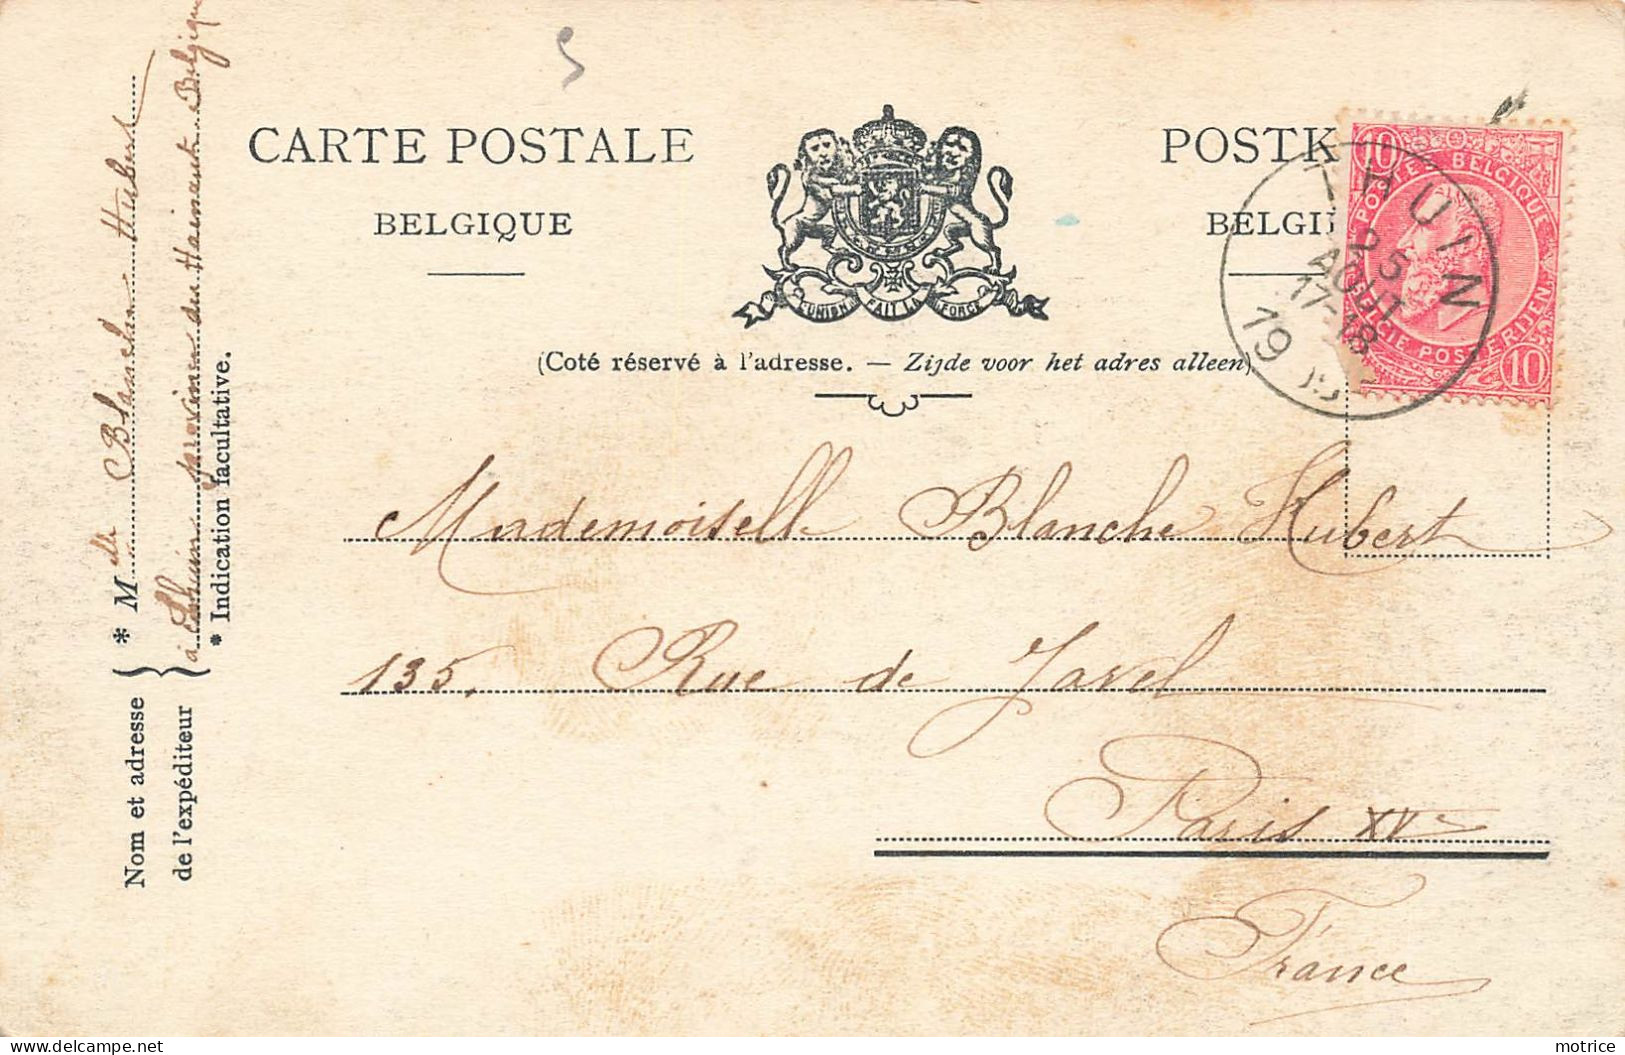 CARTE POSTALE
BELGIQUE
POSTK
BELGI
L'UNION FAIT LA FORCE
(Coté réservé à l'adresse. — Zijde voor het adres alleen)
10 10
POSTES BELGIQUE
BELGIE POSTERIJEN
10
THUIN
25
AOUT
17-18
19
Mademoiselle Blanche Hubert
135, Rue de Javel
Paris XVe
France
Nom et adresse
de l'expéditeur
* Melle Blanche Hubert
à Thuin province du Hainaut Belgique
* Indication facultative.
delcampe.net
motrice